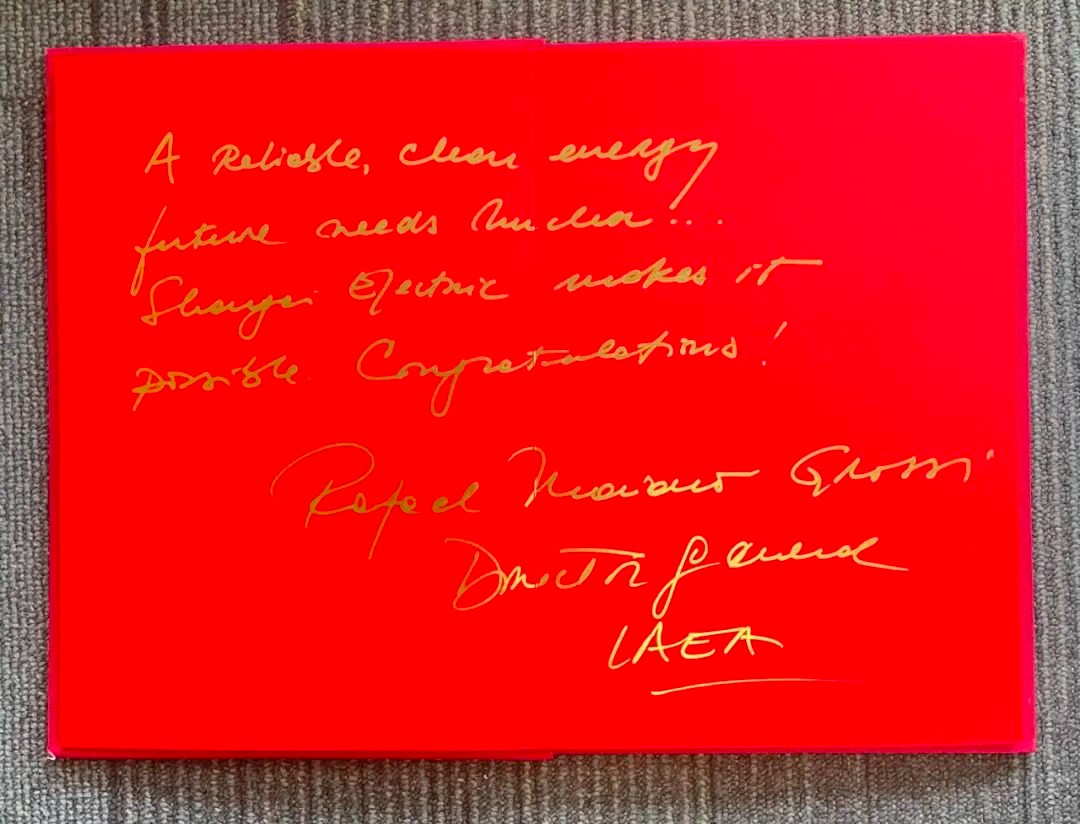 A Reliable, clean energy
future needs nuclear...
Shangai Electric makes it
possible. Congratulations!
Rafael Mariano Grossi
Director General
IAEA